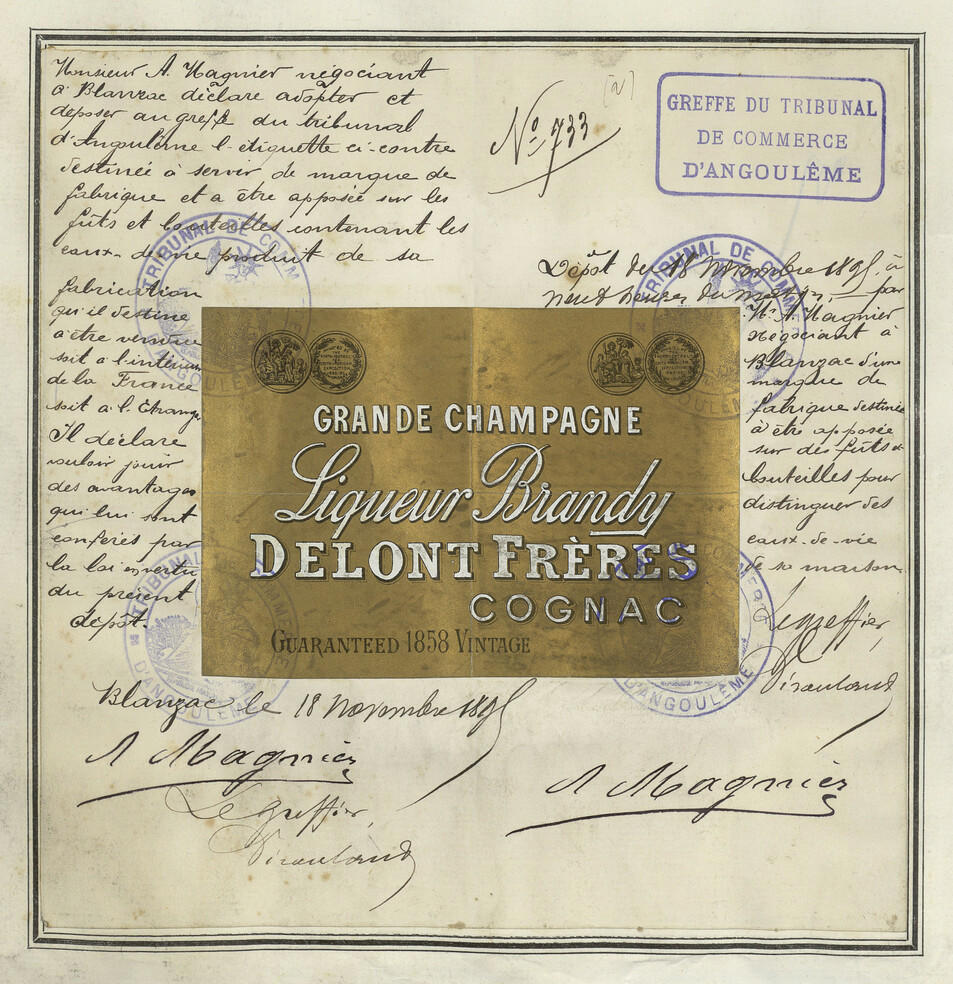 Monsieur A. Magnier négociant
à Blanzac déclare adopter et
déposer au greffe du tribunal
d'Angoulême l'étiquette ci-contre
destinée à servir de marque de
fabrique et a être apposée sur les
fûts et bouteilles contenant les
eaux-de-vie produit de sa
fabrication
qu'il destine
a être vendue
soit a l'intérieur
de la France
soit à l'Etranger
Il déclare
vouloir jouir
des avantages
qui lui sont
conférés par
la loi en vertu
du présent
dépôt.
Blanzac le 18 Novembre 1895
A Magnier
Le Greffier,
No 733
[2]
GREFFE DU TRIBUNAL
DE COMMERCE
D'ANGOULÊME
Dépôt du 18 novembre 1895, à
neuf heures du matin, par
Mr A. Magnier
négociant à
Blanzac d'une
marque de
fabrique destinée
à être apposée
sur des fûts et
bouteilles pour
distinguer des
eaux-de-vie
de sa maison
Le greffier,
A Magnier
GRANDE CHAMPAGNE
Liqueur Brandy
DELONT FRÈRES
COGNAC
GUARANTEED 1858 VINTAGE
TRIBUNAL DE COMM
TRIBUNAL DE COMMER
D'ANGOULÊME
D'ANGOULÊME